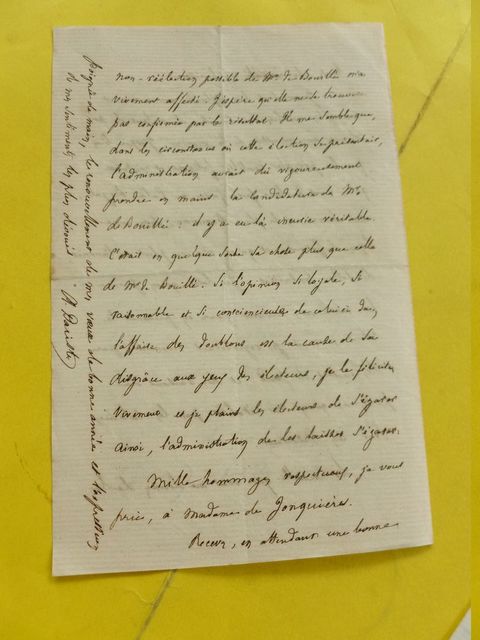 non-réélection possible de Mr de Bouillé m'a
vivement affecté. J'espère qu'elle ne se trouvera
pas confirmée par le résultat. Il me semble que,
dans les circonstances où cette élection se présentait,
l'administration aurait dû vigoureusement
prendre en mains la candidature de Mr
de Bouillé: il y a eu là incurie véritable.
C'était en quelque sorte sa chose plus que celle
de Mr de Bouillé. Si l'opinion si loyale, si
raisonnable et si consciencieuse de celui-ci dans
l'affaire des doublons est la cause de sa
disgrâce aux yeux des électeurs, je le félicite
vivement et je plains les électeurs de s'égarer
ainsi, l'administration de les laisser s'égarer.
Mille hommages respectueux, je vous
prie, à Madame de Jonquières.
Recevez, en attendant une bonne
poignée de main, le renouvellement de mes vœux de bonne année et l'expression
de mes sentiments les plus dévoués
A. Dariste